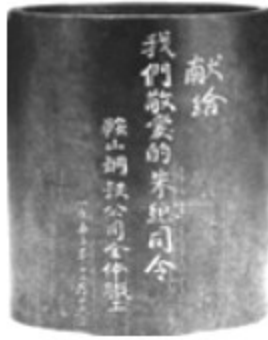 献給
我們敬愛的朱總司令
鞍山鋼鐵公司全体職工